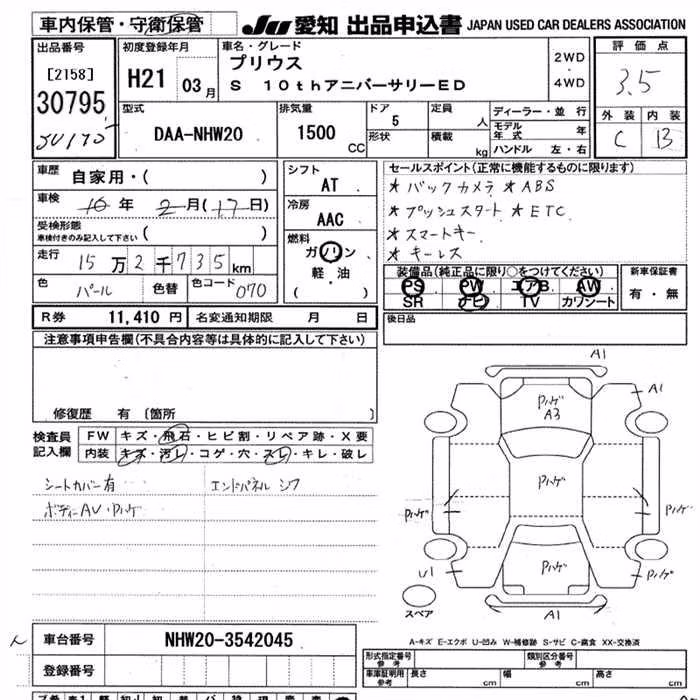 車内保管・守衛保管
JU 愛知 出品申込書 JAPAN USED CAR DEALERS ASSOCIATION
出品番号
[2158]
30795
初度登録年月
H21 03月
車名・グレード
プリウス
S 10thアニバーサリーED
2WD
・
4WD
評価点
3.5
外装 内装
C B
型式
DAA-NHW20
排気量
1500 CC
ドア
5
形状
定員
人
積載
kg
ディーラー・並行
モデル年式 年
ハンドル 左・右
車歴
自家用・( )
車検
16年 2月(17日)
受検形態
車検付きのみ記入して下さい ( )
走行
15万2千735km
色 パール 色替 色コード 070
シフト
AT
冷房
AAC
燃料
ガソリン
軽・油
( )
セールスポイント(正常に機能するものに限ります)
★バックカメラ ★ABS
★プッシュスタート ★ETC
★スマートキー
★キーレス
装備品(純正品に限り○をつけてください)
PS PW エアB AW
SR ナビ TV カワシート
新車保証書
有・無
R券 11,410円 名変通知期限 月 日
後日品
注意事項申告欄(不具合内容等は具体的に記入して下さい)
修復歴 有 〔箇所 〕
検査員
記入欄
FW キズ・飛石・ヒビ割・リペア跡・X要
内装 キズ・汚レ・コゲ・穴・スレ・キレ・破レ
シートカバー有
エンドパネル シワ
ボディーAV・Pハゲ
A1
A1
Pハゲ
A3
Pハゲ
Pハゲ
Pハゲ
Pハゲ
U1
Pハゲ
A1
スペア
車台番号 NHW20-3542045
登録番号
A-キズ E-エクボ U-凹み W-補修跡 S-サビ C-腐食 XX-交換済
形式指定番号
参考
類別区分番号
参考
車庫証明用
参考
長さ cm 幅 cm 高さ cm